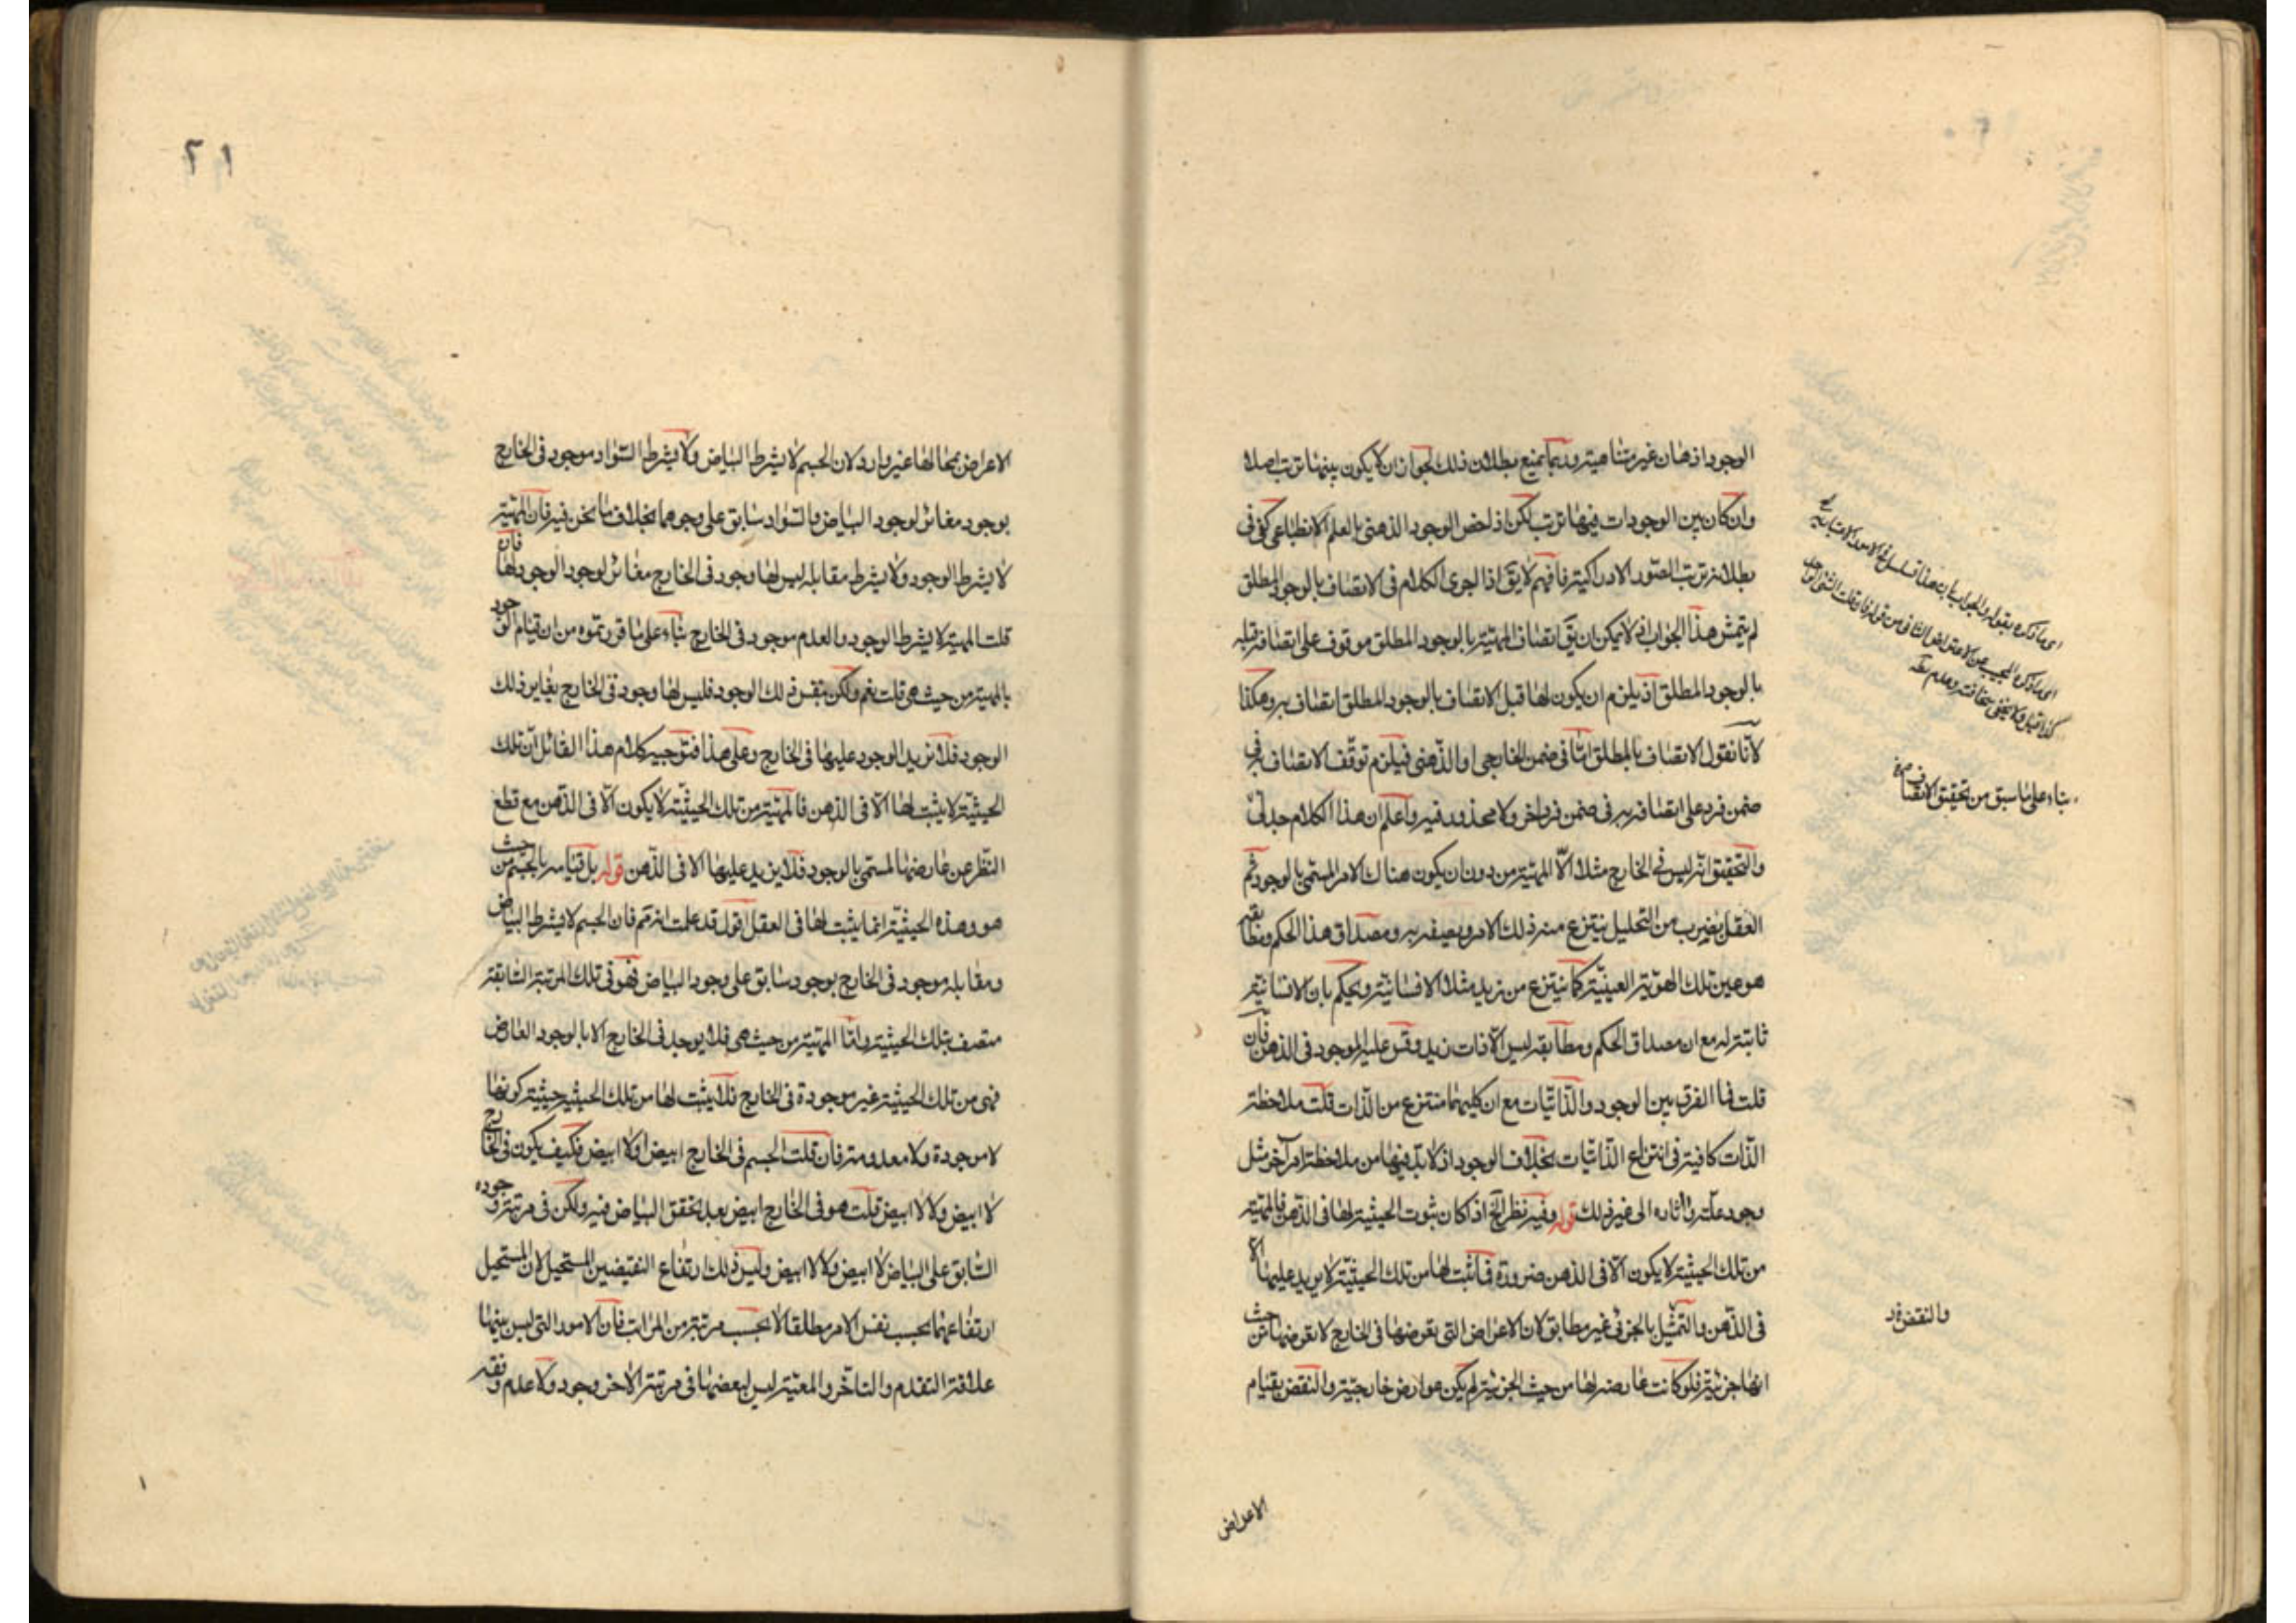 الوجود اذهان غير متناهية وربما يمنع بطلان ذلك لجواز ان لا يكون بينها ترتب اصلا
وان كان بين الوجودات فيها ترتب لكن اذ لخص الوجود الذهنى بالعلم الانطباعى كفى فى
بطلانه ترتب الصور الادراكية فافهم لا يقَ اذا اجرى الكلام فى الاتصاف بالوجود المطلق
لم يتمش هذا الجواب اذ لا يمكن ان يقَ اتصاف المهية بالوجود المطلق موقوف على اتصافه قبله
بالوجود المطلق اذ يلزم ان يكون لها قبل الاتصاف بالوجود المطلق اتصاف به وهكذا
لانا نقول الاتصاف بالمطلق اما فى ضمن الخارجى او الذهنى فيلزم توقف الاتصاف به فى
ضمن فرد على اتصافه به فى ضمن فرد اخر ولا محذور فيه واعلم ان هذا الكلام جدلىّ
والتحقيق انه ليس فى الخارج مثلا الّا المهية من دون ان يكون هناك الامر المسمى بالوجود ثم
العقل بضرب من التحليل ينتزع منه ذلك الامر ويصفه به ومصداق هذا الحكم ومطابقه
هو عين تلك الهوية العينية كما ينتزع من زيد مثلا الانسانية ويحكم بان الانسانية
ثابتة له مع ان مصداق الحكم ومطابقه ليس الّا ذات زيد وقس عليه الموجود فى الذهن فان
قلت فما الفرق بين الوجود والذاتيات مع ان كليهما منتزع من الذات قلت ملاحظة
الذات كافية فى انتزاع الذاتيات بخلاف الوجود اذ لا بد فيها من ملاحظة امر آخر مثل
وجود علته واثاره الى غير ذلك قوله وفيه نظر الخ اذا كان ثبوت الحيثية لها فى الذهن فالمهية
من تلك الحيثية لا يكون الّا فى الذهن ضرورة فما ثبت لها من تلك الحيثية لا يزيد عليها الا
فى الذهن والتمثيل بالجزئى غير مطابق لان الاعراض التى يعرضها فى الخارج لا يعرضها من حيث
انها جزئية فلو كانت عارضة لها من حيث الجزئية لم يكن عوارض خارجية والنقض بقيام
بناء على ما سبق من تحقيق الاتصاف
والنقض
الاعراض
٢١
الاعراض بمحالها غير وارد لان الجسم لا بشرط البياض ولا بشرط السواد موجود فى الخارج
بوجود مغائر لوجود البياض والسواد سابق على وجودهما بخلاف ما نحن فيه فان المهية
لا بشرط الوجود ولا بشرط مقابله ليس لها وجود فى الخارج مغائر لوجود الوجود لها فان
قلت المهية لا بشرط الوجود والعدم موجود فى الخارج بناء على ما قررتموه من ان قيام الوجود
بالمهية من حيث هى قلت نعم ولكن بنفس ذلك الوجود فليس لها وجود فى الخارج يغاير ذلك
الوجود فلا يزيد الوجود عليها فى الخارج وعلى هذا فتوجيه كلام هذا القائل ان تلك
الحيثية لا يثبت لها الّا فى الذهن فالمهية من تلك الحيثية لا يكون الّا فى الذهن مع قطع
النظر عن عارضها المسمى بالوجود فلا يزيد عليها الا فى الذهن قوله بل قيامه بالجسم من حيث
هو وهذه الحيثية انما يثبت لها فى العقل اقول قد علمت انه تم فان الجسم لا بشرط البياض
ومقابله موجود فى الخارج بوجود سابق على وجود البياض فهو فى تلك المرتبة السابقة
متصف بتلك الحيثية واما المهية من حيث هى فلا يوجد فى الخارج الا بالوجود العارض
فهى من تلك الحيثية غير موجودة فى الخارج فلا يثبت لها من تلك الحيثية حيثية كونها
لا موجودة ولا معدومة فان قلت الجسم فى الخارج ابيض او لا ابيض فكيف يكون فى الخارج
لا ابيض ولا لا ابيض قلت هو فى الخارج ابيض بعد تحقق البياض فيه ولكن فى مرتبة وجوده
السابق على البياض لا ابيض ولا لا ابيض وليس ذلك ارتفاع النقيضين المستحيل لان المستحيل
ارتفاعهما بحسب نفس الامر مطلقا لا بحسب مرتبة من المراتب فان الامور التى ليس بينها
علاقة التقدم والتأخر والمعية ليس لبعضها فى مرتبة الاخر وجود ولا عدم وفقه